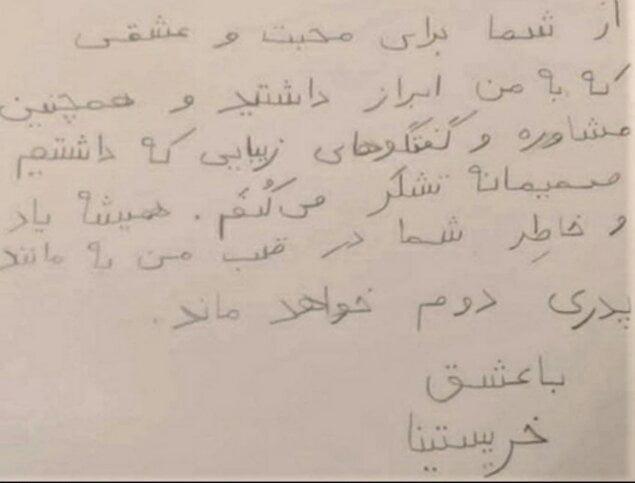 از شما برای محبت و عشقی
که به من ابراز داشتید و همچنین
مشاوره و گفتگوهای زیبایی که داشتیم
صمیمانه تشکر می‌کُنَم. همیشه یاد
و خاطِر شما در قلب من به مانند
پدری دوم خواهد ماند.
باعشق
خریستینا